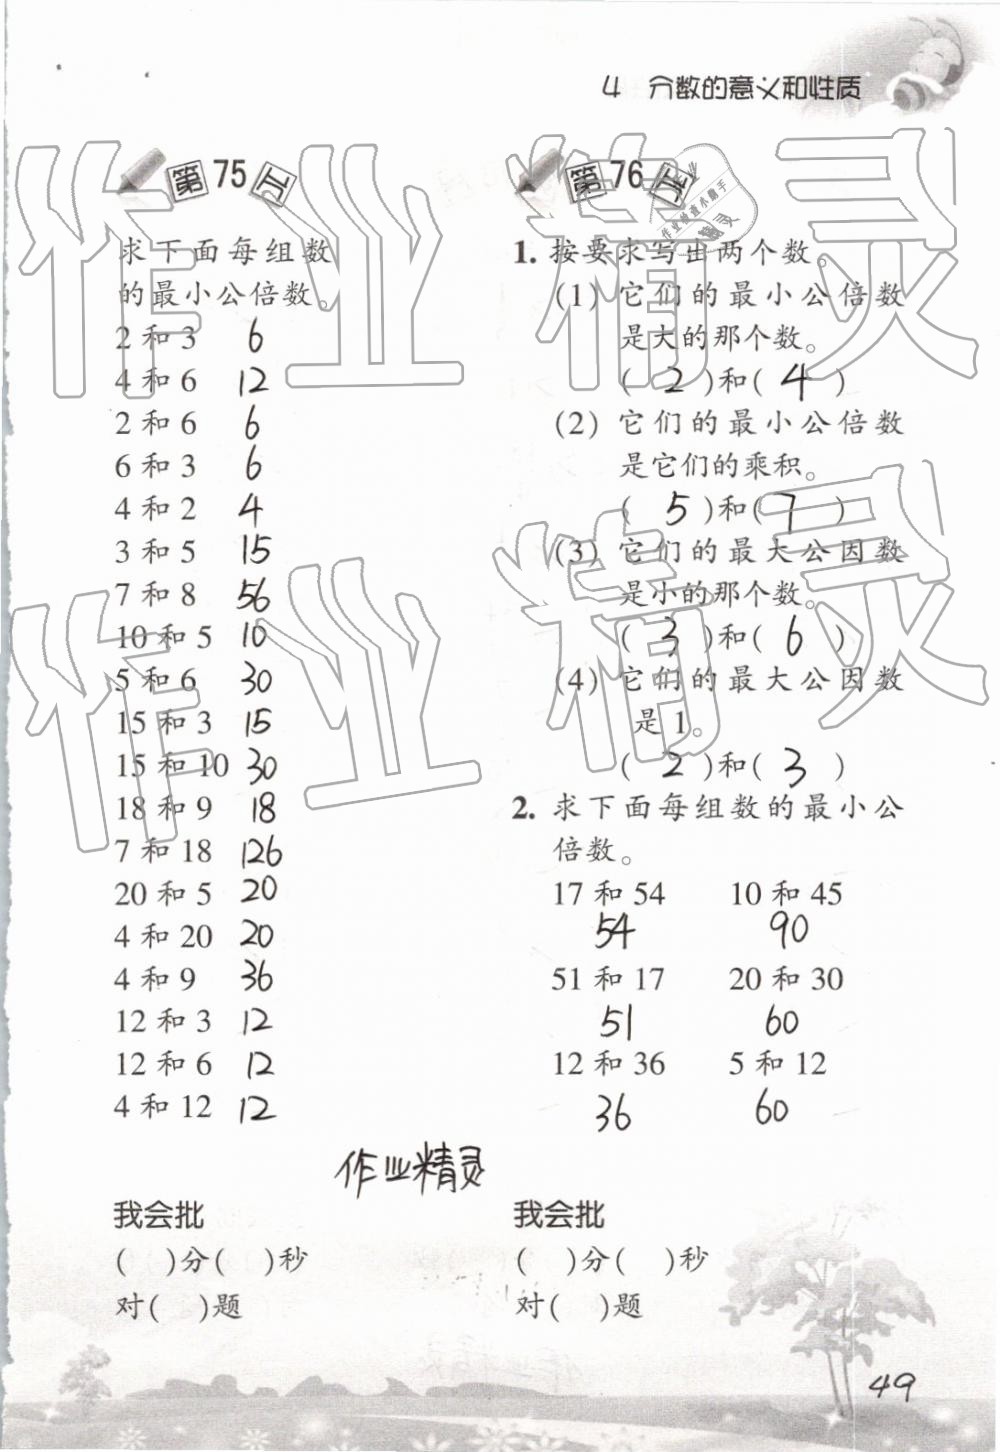 4 分数的意义和性质
第75页
求下面每组数
的最小公倍数。
2和3 6
4和6 12
2和6 6
6和3 6
4和2 4
3和5 15
7和8 56
10和5 10
5和6 30
15和3 15
15和10 30
18和9 18
7和18 126
20和5 20
4和20 20
4和9 36
12和3 12
12和6 12
4和12 12
我会批
( )分( )秒
对( )题
第76页
1. 按要求写出两个数。
(1) 它们的最小公倍数
是大的那个数。
( 2 )和( 4 )
(2) 它们的最小公倍数
是它们的乘积。
( 5 )和( 7 )
(3) 它们的最大公因数
是小的那个数。
( 3 )和( 6 )
(4) 它们的最大公因数
是1。
( 2 )和( 3 )
2. 求下面每组数的最小公
倍数。
17和54 10和45
54 90
51和17 20和30
51 60
12和36 5和12
36 60
我会批
( )分( )秒
对( )题
作业精灵
49
作业精灵
作业精灵
作业检查小助手